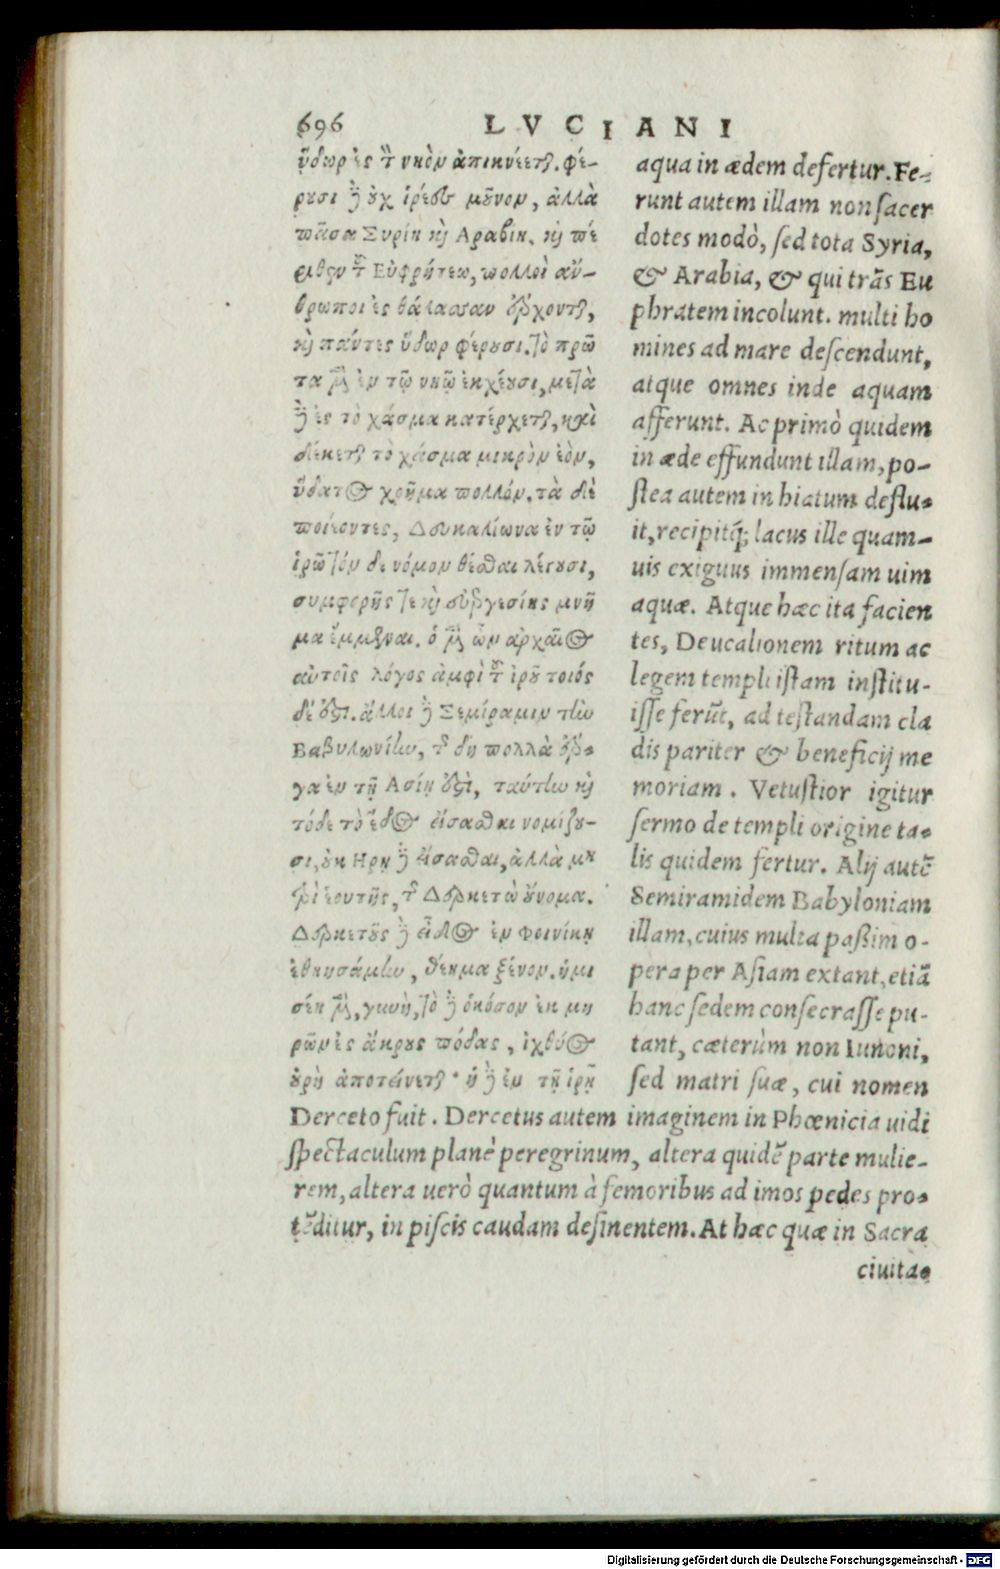 696 LVCIANI
ὕδωρ ἐς τ νηὸν ἀπικνέετ. φέ-
ρουσι ὃ οὐχ ἱρέες μοῦνον, ἀλλὰ
πᾶσα Συρίη κỳ Αραβίη. κỳ πέ
ρηθεν τ Εὐφρήτεω, πολλοὶ ἄν-
θρωποι ἐς θάλασσαν ἔρχοντ,
κỳ πάντες ὕδωρ φέρουσι. τὸ πρῶ
τα μὲν ἐν τῷ νηῷ ἐκχέουσι, μετὰ
ὃ ἐς τὸ χάσμα κατέρχετ, καὶ
δέκετ τὸ χάσμα μικρὸν ἐὸν,
ὕδατος χρῆμα πολλόν. τὰ δὲ
ποιέοντες, Δευκαλίωνα ἐν τῷ
ἱρῷ τόν δε νόμον θέσθαι λέγουσι,
συμφορῆς τε κỳ εὐεργεσίης μνῆ
μα ἔμμεναι. ὁ μὲν ὦν ἀρχαῖος
αὐτοῖς λόγος ἀμφὶ τ ἱροῦ τοιός
δέ ἐστι. ἄλλοι ὃ Σεμίραμιν τὴν
Βαβυλωνίην, τ δὴ πολλὰ ἔρ-
γα ἐν τῇ Ασίῃ ἐστὶ, ταύτην κỳ
τόδε τὸ ἕδος εἴσασθαι νομίζου-
σι, οὐκ Ηρῃ ὃ εἴσασθαι, ἀλλὰ μη
τρὶ ἑουτῆς, τ Δερκετὼ οὔνομα.
Δερκετοῦς ὃ εἶδος ἐν Φοινίκῃ
ἐθηησάμην, θέημα ξένον. ἡμι
σέη μὲν, γυνὴ, τὸ ὃ ὁκόσον ἐκ μη
ρῶν ἐς ἄκρους πόδας, ἰχθύος
οὐρὴ ἀποτείνετ· ἡ ὃ ἐν τῇ ἱρῇ
aqua in ædem defertur. Fe-
runt autem illam non sacer
dotes modò, sed tota Syria,
& Arabia, & qui trãs Eu
phratem incolunt. multi ho
mines ad mare descendunt,
atque omnes inde aquam
afferunt. Ac primò quidem
in æde effundunt illam, po-
stea autem in hiatum deflu-
it, recipitq́; lacus ille quam-
uis exiguus immensam uim
aquæ. Atque hæc ita facien
tes, Deucalionem ritum ac
legem templi istam institu-
isse ferũt, ad testandam cla
dis pariter & beneficij me
moriam. Vetustior igitur
sermo de templi origine ta-
lis quidem fertur. Alij autẽ
Semiramidem Babyloniam
illam, cuius multa paßim o-
pera per Asiam extant, etiã
hanc sedem consecrasse pu-
tant, cæterùm non Iunoni,
sed matri suæ, cui nomen
Derceto fuit. Dercetus autem imaginem in Phœnicia uidi
spectaculum planè peregrinum, altera quidẽ parte mulie-
rem, altera uerò quantum à femoribus ad imos pedes pro-
tẽditur, in piscis caudam desinentem. At hæc quæ in Sacra
ciuita-
Digitalisierung gefördert durch die Deutsche Forschungsgemeinschaft - DFG